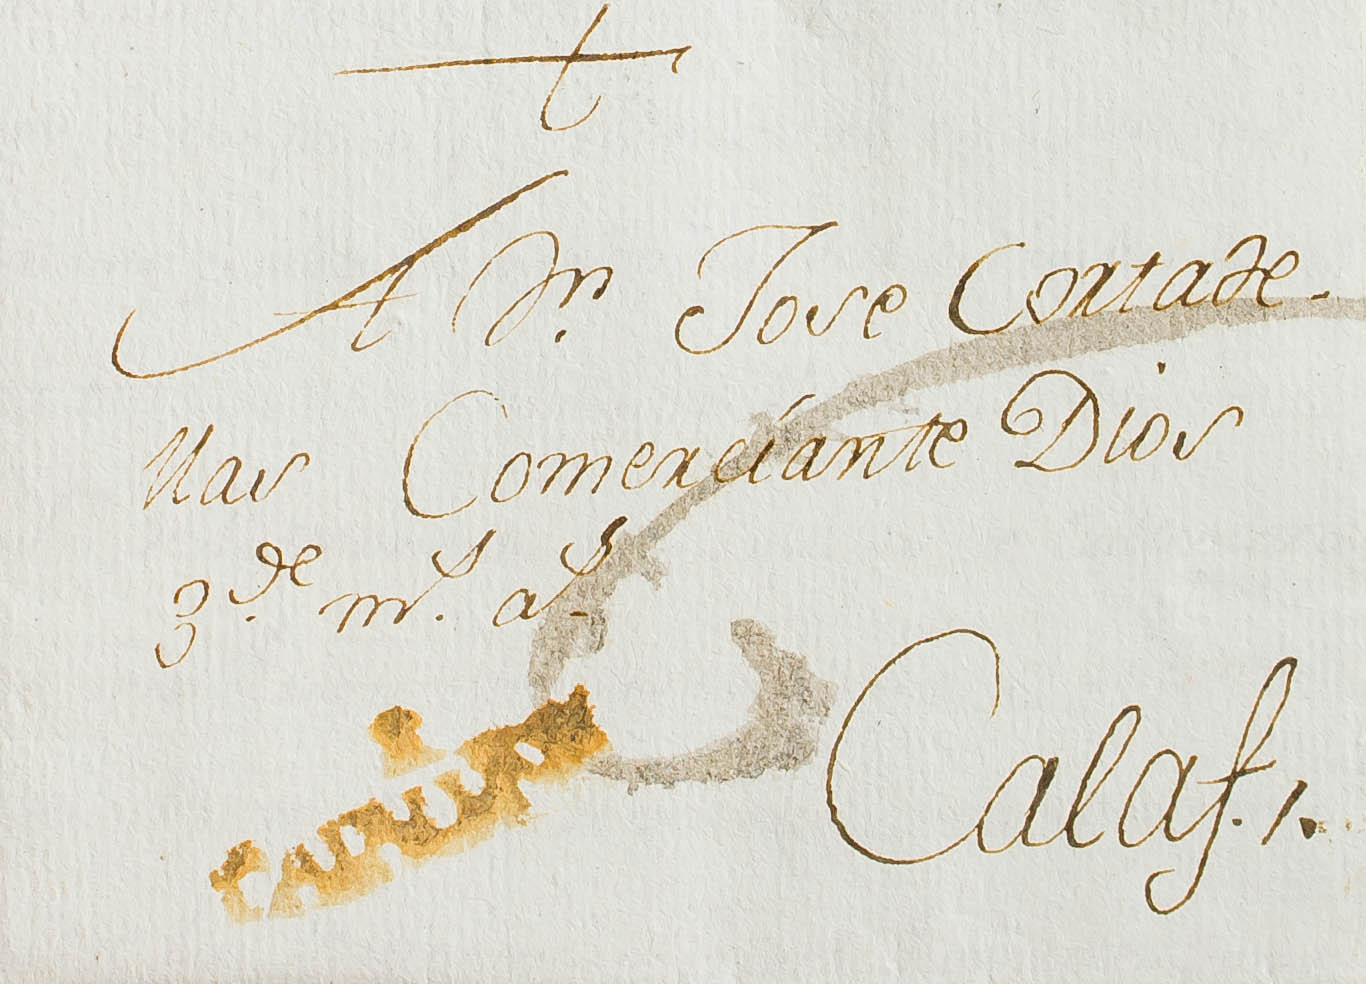 A Dn. Jose Cortade.
Mas Comerciante Dios
gde. ms. as.
Calaf.